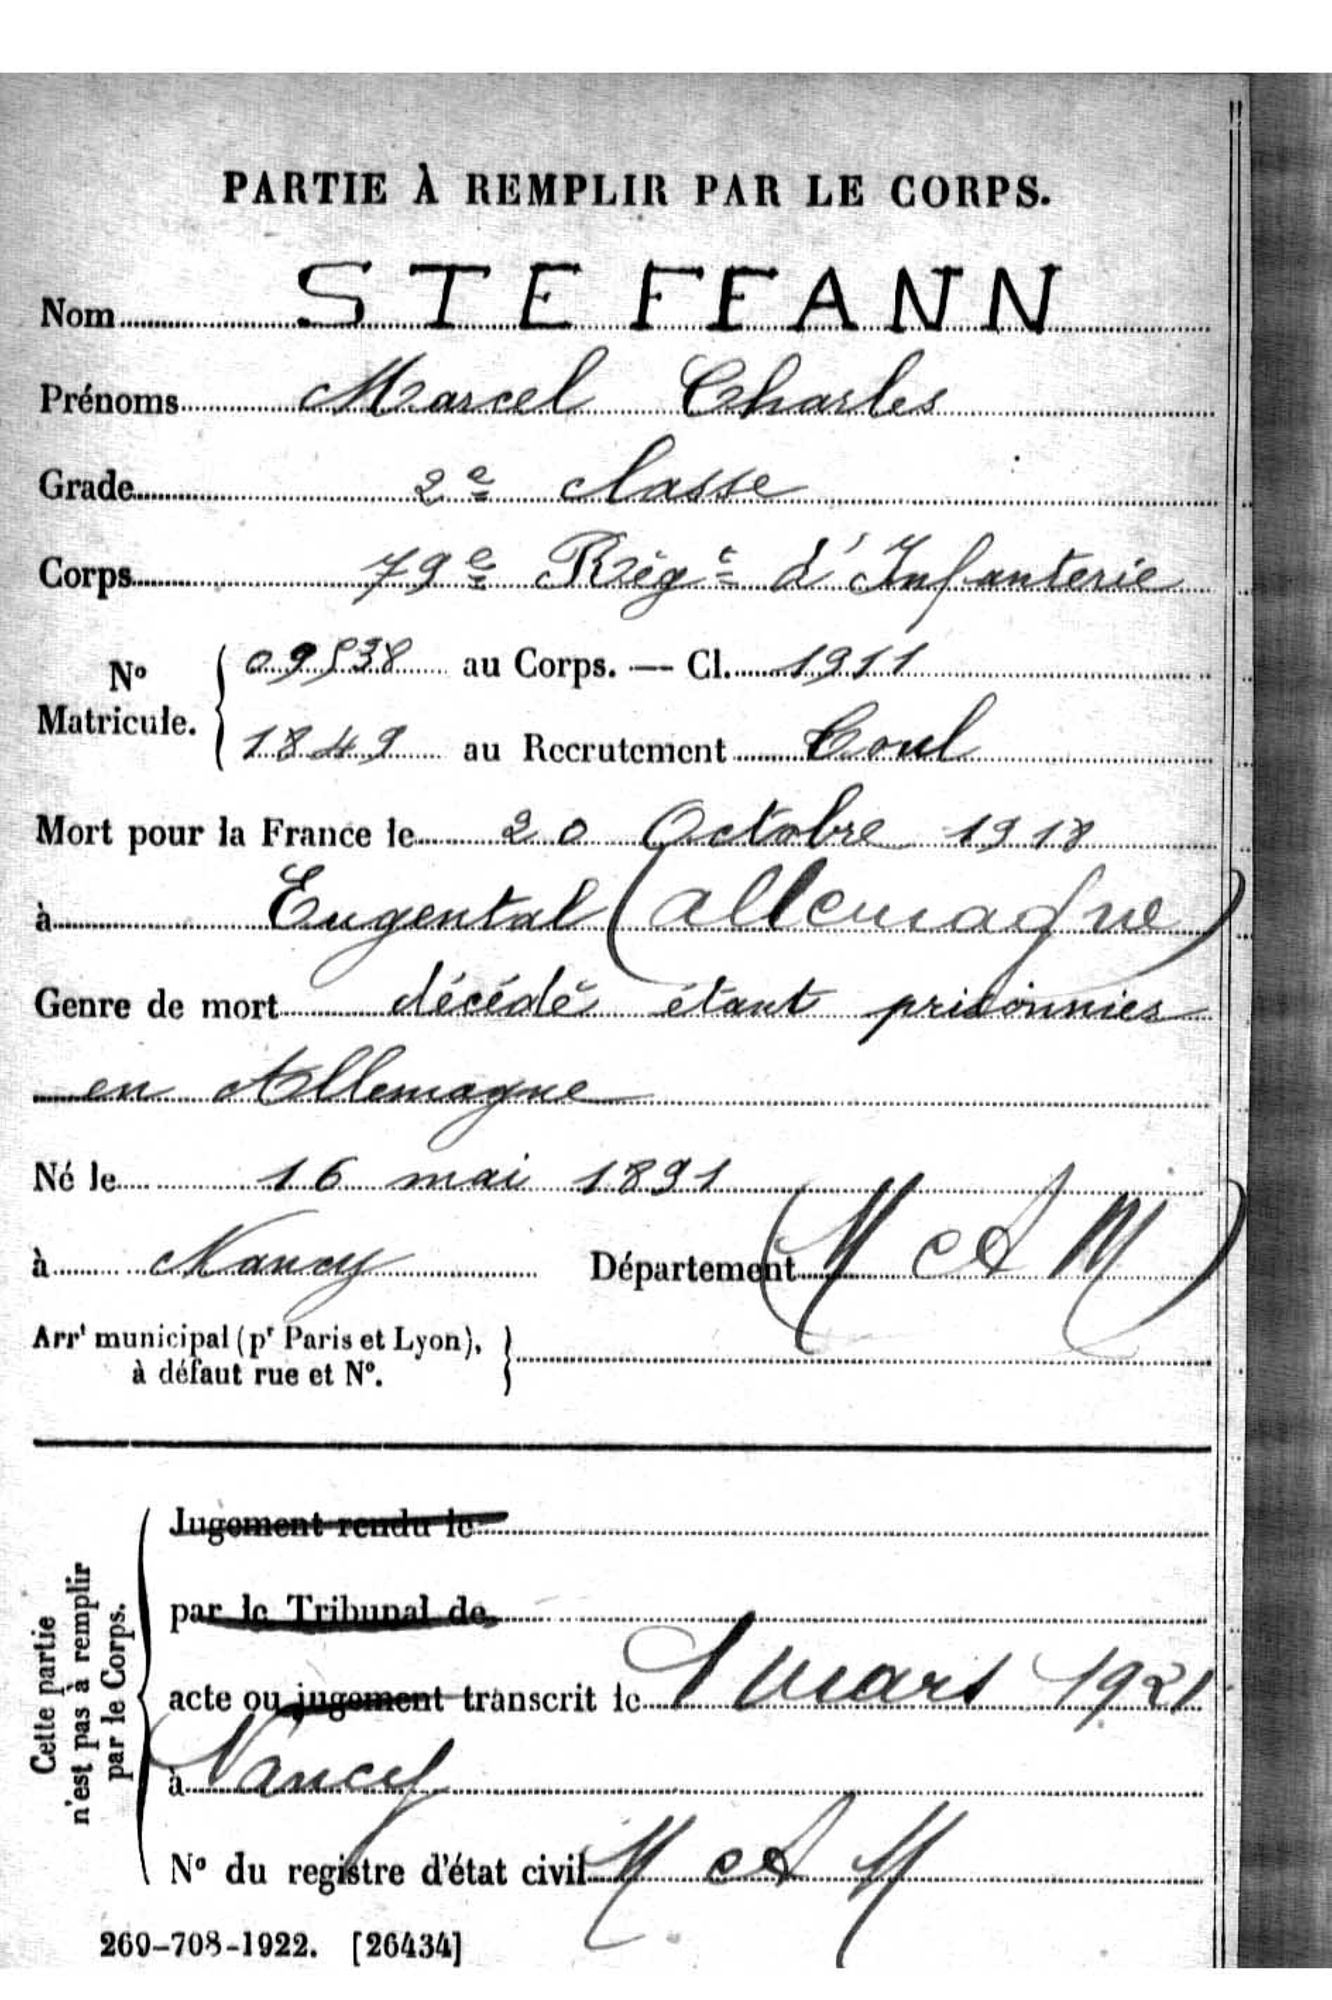 PARTIE À REMPLIR PAR LE CORPS.
Nom STEFFANN
Prénoms Marcel Charles
Grade 2e classe
Corps 79e Régt d'Infanterie
No Matricule. { 09538 au Corps. — Cl. 1911
1849 au Recrutement Toul
Mort pour la France le 20 Octobre 1918
à Eugental (Allemagne)
Genre de mort décédé étant prisonnier
en Allemagne
Né le 16 mai 1891
à Nancy Département (M et M)
Arrt municipal (pr Paris et Lyon),
à défaut rue et No.
Cette partie
n'est pas à remplir
par le Corps.
Jugement rendu le
par le Tribunal de
acte ou jugement transcrit le 1 mars 1921
à Nancy
No du registre d'état civil M et M
269-708-1922. [26434]